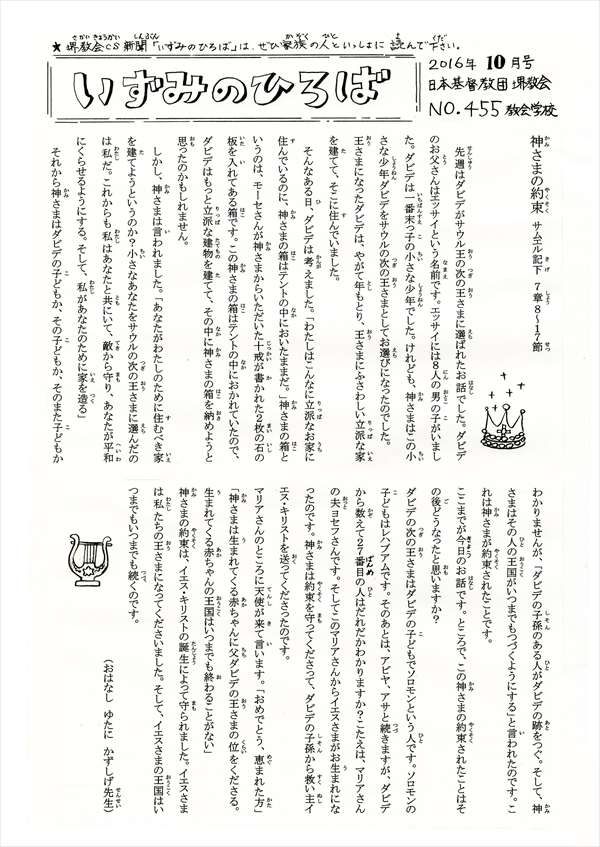 ★堺教会CS新聞「いずみのひろば」は、ぜひ家族の人といっしょに読んで下さい。
いずみのひろば
2016年10月号
日本基督教団堺教会
NO.455教会学校
神さまの約束 サムエル記下 7章8〜17節
先週はダビデがサウル王の次の王さまに選ばれたお話でした。ダビデ
のお父さんはエッサイという名前です。エッサイには8人の男の子がいまし
た。ダビデは一番末っ子の小さな少年でした。けれども、神さまはこの小
さな少年ダビデをサウルの次の王さまとしてお選びになったのでした。
王さまになったダビデは、やがて年もとり、王さまにふさわしい立派な家
を建てて、そこに住んでいました。
そんなある日、ダビデは考えました。「わたしはこんなに立派なお家に
住んでいるのに、神さまの箱はテントの中においたままだ。」神さまの箱と
いうのは、モーセさんが神さまからいただいた十戒が書かれた2枚の石の
板を入れてある箱です。この神さまの箱はテントの中におかれていたので、
ダビデはもっと立派な建物を建てて、その中に神さまの箱を納めようと
思ったのかもしれません。
しかし、神さまは言われました。「あなたがわたしのために住むべき家
を建てようというのか?小さなあなたをサウルの次の王さまに選んだの
は私だ。これからも私はあなたと共にいて、敵から守り、あなたが平和
にくらせるようにする。そして、私があなたのために家を造る」
それから神さまはダビデの子どもか、その子どもか、そのまた子どもか
わかりませんが、「ダビデの子孫のある人がダビデの跡をつぐ。そして、神
さまはその人の王国がいつまでもつづくようにすること言われたのです。こ
れは神さまが約束されたことです。
ここまでが今日のお話です。ところで、この神さまの約束されたことはそ
の後どうなったと思いますか?
ダビデの次の王さまはダビデの子どもでソロモンという人です。ソロモンの
子どもはレハブアムです。そのあとは、アビヤ、アサと続きますが、ダビデ
から数えて27番目の人はだれだかわかりますか?こたえは、マリアさん
の夫ヨセフさんです。そしてこのマリアさんからイエスさまがお生まれにな
ったのです。神さまは約束を守ってくださって、ダビデの子孫から救い主イ
エス・キリストを送ってくださったのです。
マリアさんのところに天使が来て言います。「おめでとう、恵まれた方」
「神さまは生まれてくる赤ちゃんに父ダビデの王さまの位をくださる。
生まれてくる赤ちゃんの王国はいつまでも終わることがない」
神さまの約束は、イエス・キリストの誕生によって守られました。イエスさま
は私たちの王さまになってくださいました。そして、イエスさまの王国はい
つまでもいつまでも続くのです。
(おはなし ゆたに かずしげ先生)